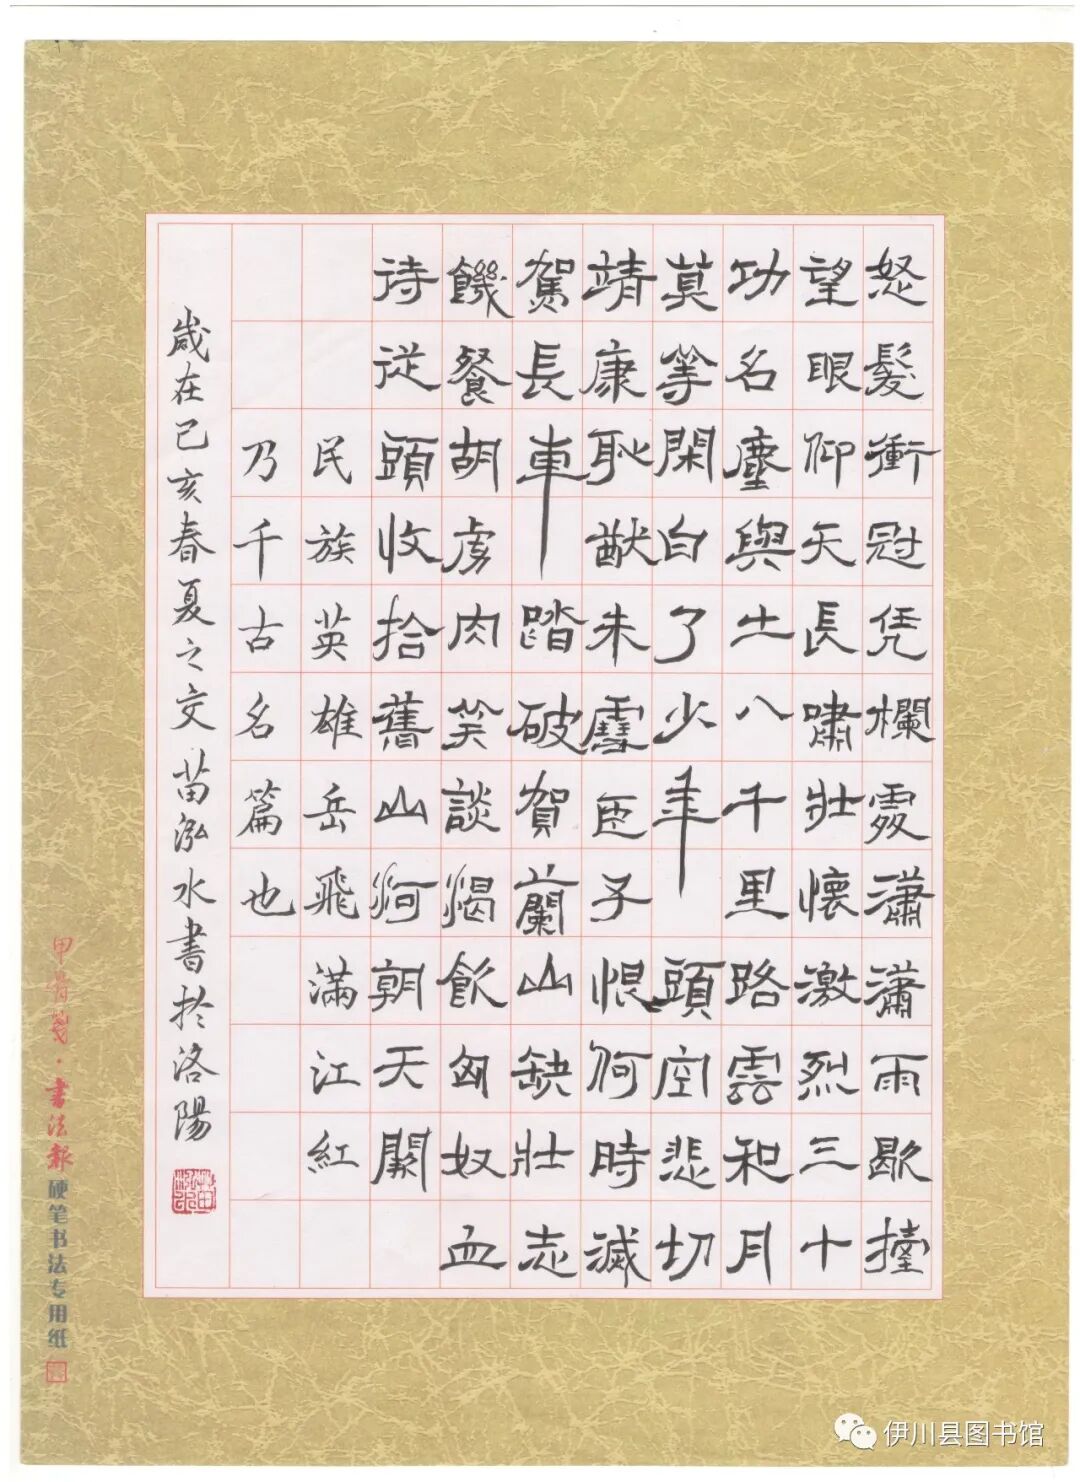 怒髮衝冠凭欄處瀟瀟雨歇擡
望眼仰天長嘯壯懷激烈三十
功名塵與土八千里路雲和月
莫等閑白了少年頭空悲切
靖康耻猷未雪臣子恨何時滅
駕長車踏破賀蘭山缺壯志
饑餐胡虜肉笑談渴飲匈奴血
待從頭收拾舊山河朝天闕
民族英雄岳飛滿江紅
乃千古名篇也
歲在己亥春夏之交苗泓水書於洛陽
甲骨箋·書法報硬笔书法专用纸
伊川县图书馆